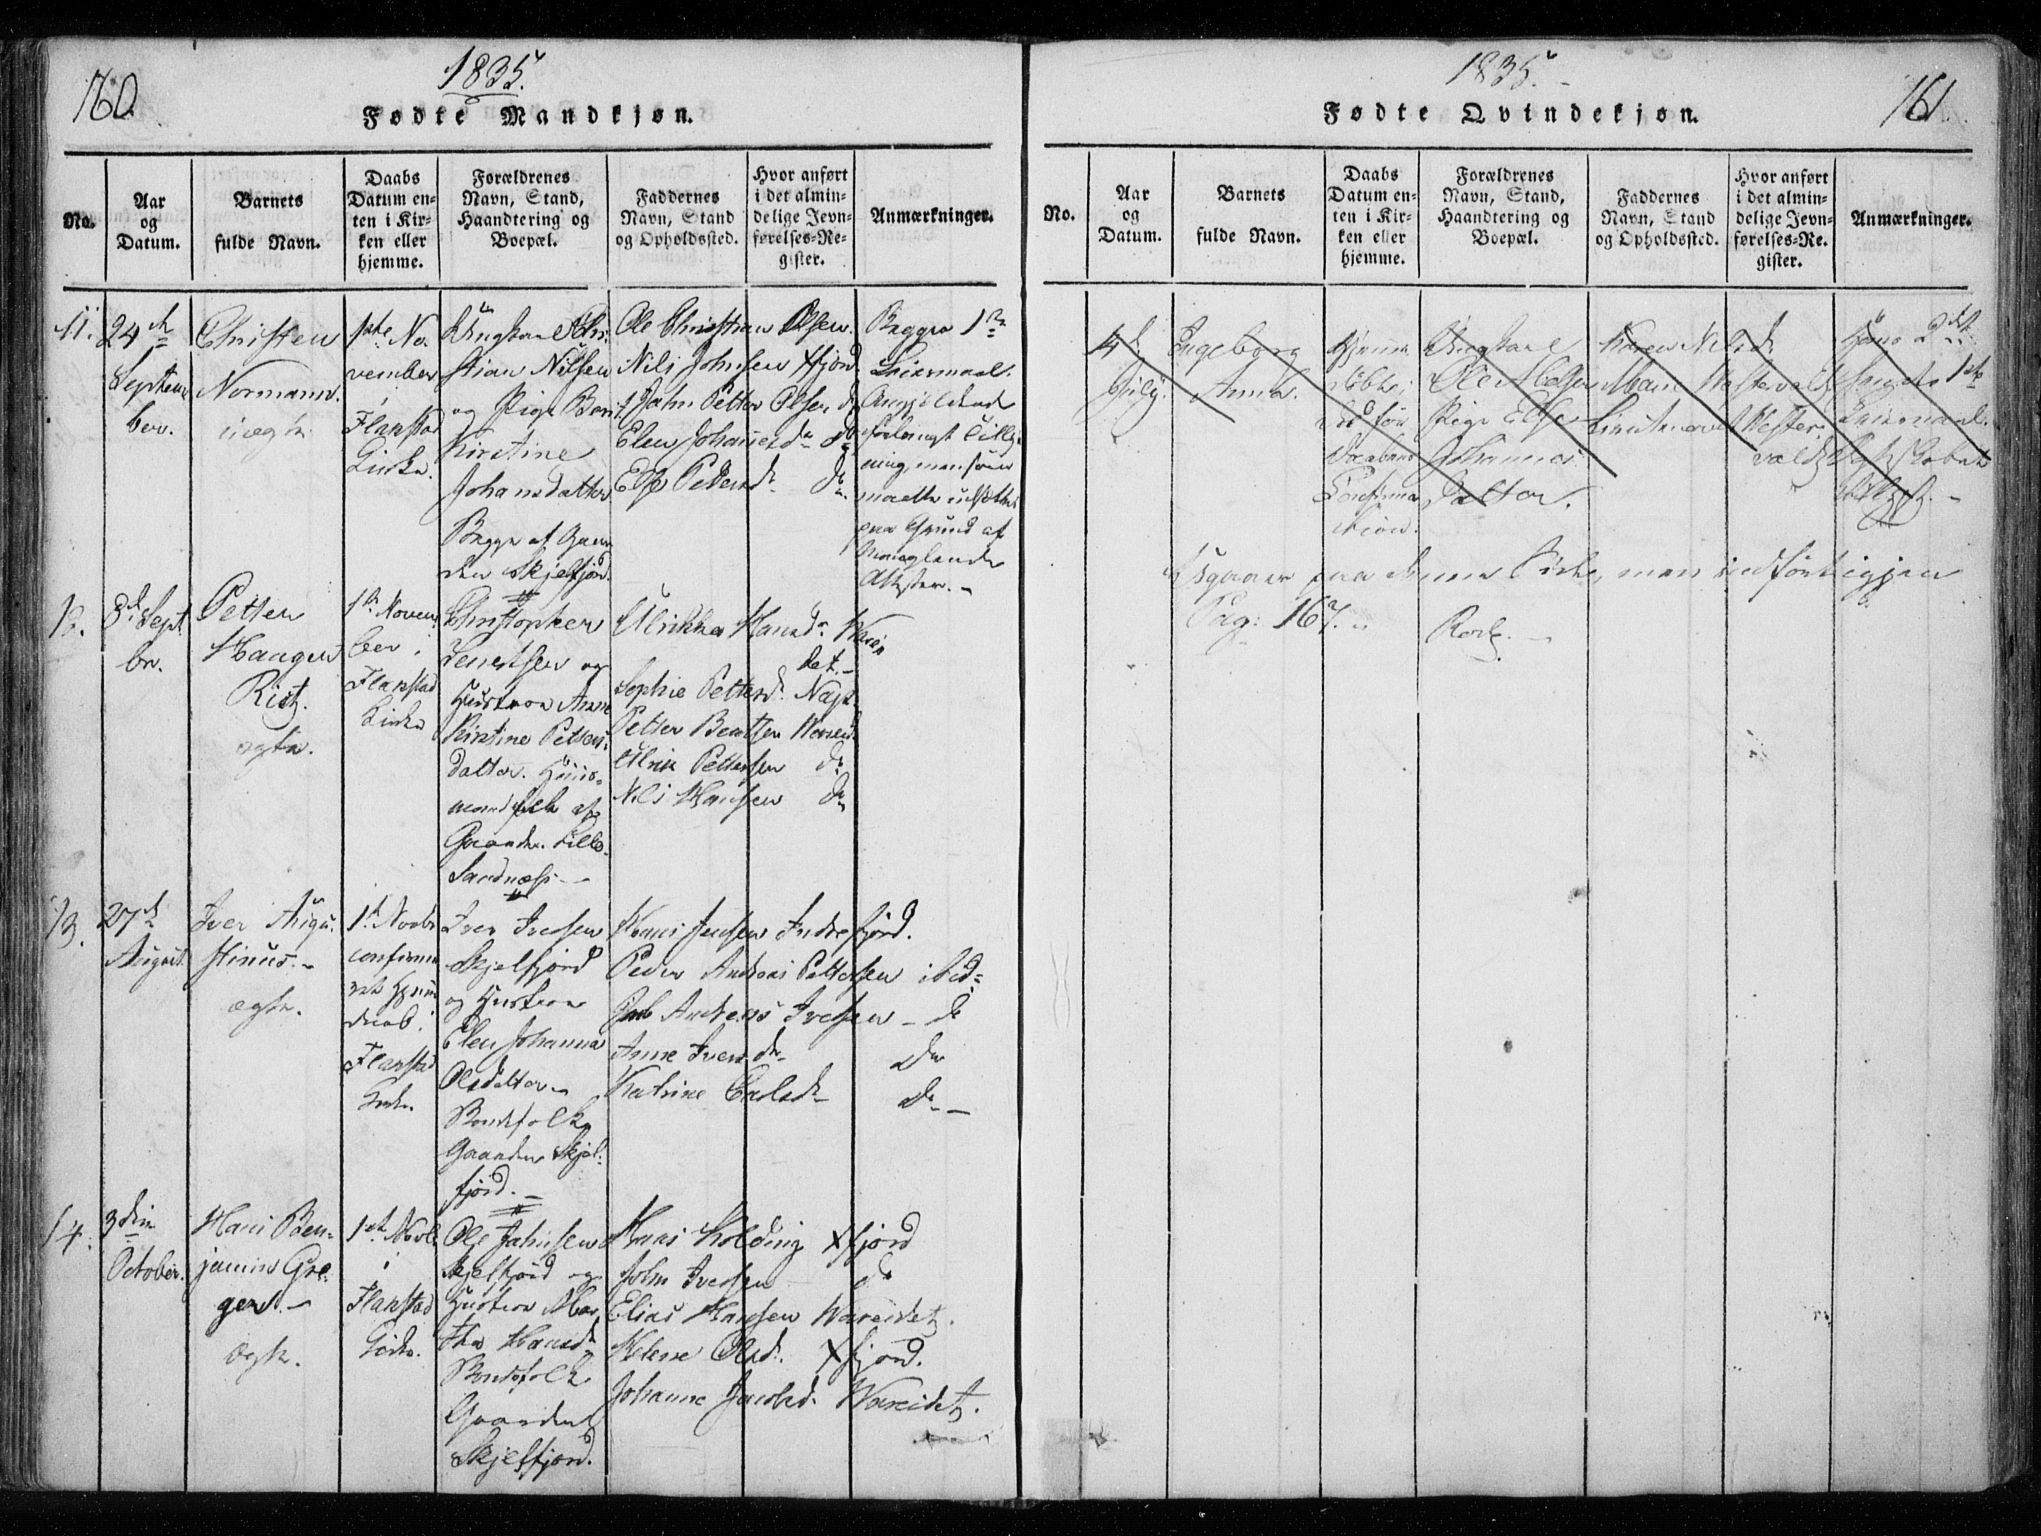 160.
1835.
Fødte Mandkjøn.
No.
Aar
og
Datum.
Barnets
fulde Navn.
Daabs
Datum en-
ten i Kir-
ken eller
hjemme.
Forældrenes
Navn, Stand,
Haandtering og
Boepæl.
Faddernes
Navn, Stand
og Opholdssted.
Hvor anført
i det almin-
delige Jevn-
førelses-Re-
gister.
Anmærkninger.
11.
24de
Septem
ber.
Christen
Normann.
uægte.
1ste No-
vember
i
Flakstad
Kirke.
Ungkarl Chri-
stian Nilsen
og Pige Berit
Kirstine
Johansdatter
Begge af Gaar
den Skjelfjord.
Ole Christian Olsen.
Nils Johnsen Xfjord
John Petter Olsen do
Elen Johansdr do
Else Petersdr do
Begges 1ste
Leiermaal.
Angjeldende
forlangt Tilly-
ning, men som
maatte udsættes
paa Grund af
Manglende
Attester.
12.
8de Sept.
br.
Petter
Haagen
Rist.
ægte.
1ste Novem
ber i
Flakstad
Kirke
Christopher
Lenertsen og
Hustrue Anne
Kirstine Petters-
datter. Huus-
mandsfolk af
Gaarden Lille
Sandnæss
Ulrikke Hansdr Varei
det.
Sophie Pettersdr Napp.
Petter Bentsen Wareid
Ulrik Pettersen do
Nils Hansen do
13.
27de
August.
Iver Augu-
stinus.
ægte.
1ste Novbr
confirme
ret Hjemme
daab i
Flakstad
Kirke.
Iver Iversen
Skjelfjord
og Hustrue
Elen Johanna
Olsdatter
Bondefolk
Gaarden Skjel-
fjord.
Hans Jensen Indrefjord.
Peder Andreas Pettersen ibid.
Andreas Iversen - do
Anne Iversdr do
Katrine Carlsdr do
14.
3die
October.
Hans Ben-
jamin Gre-
gers.
Ægte.
1ste Novbr
i
Flakstad
Kirke.
Ole Johnsen
Skjelfjord og
Hustrue Mar
tha Hansdr
Bondefolk
Gaarden
Skjelfjord.
Hans Kolding Xfjord
John Iversen do
Elias Hansen Wareidet.
Helene Olsdr. Xfjord.
Johanne Jacobsdr Wareidet.
1835.
161.
Fødte Qvindekjøn.
No.
Aar
og
Datum.
Barnets
fulde Navn.
Daabs
Datum en-
ten i Kir-
ken eller
hjemme.
Forældrenes
Navn, Stand,
Haandtering og
Boepæl.
Faddernes
Navn, Stand
og Opholdssted.
Hvor anført
i det almin-
delige Jevn-
førelses-Re-
gister.
Anmærkninger.
4de
July.
Engeborg
Anna.
Hjemme
døbt;
død før
Daabens
Confirma
tion.
Ungkarl
Ole
Pige Else
Johannes
datter.
Karen Nilsdr
Maren
Wester
vald
Hans 2det
hendes 1ste
Leiermaal.
Udgaaer paa denne Side, men indført igjen
Pag: 167.